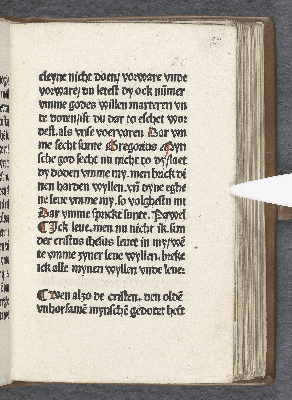 cleyne nicht doen/ vorware vnde
vorware/ du letest dy ock nūmer
vmme godes willen marteren vn
te doten/ ist du dar to eschet wor
dest. als vnse voervaren. Dar vm
me secht sunte Gregorius Myn
sche god secht nu nicht to dy/ laet
dy doden vmme my. men brick di
nen harden wyllen. vn̄ dyne eghe
ne leue vmme my. so volghestu mi
Dar vmme spricke sunte. Pawel
Ick leue. men nu nicht ik. sun
der cristus ihesus leuet in my/ we
te vmme syner leue wyllen. breke
ick alle mynen wyllen vnde leue.
Wen also de cristen. den oldē
vnhorsamē mynschē gedotet heft